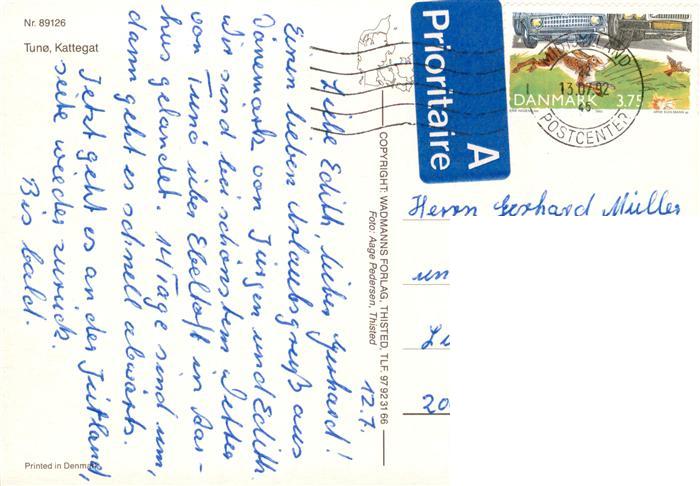 Nr. 89126
Tunø, Kattegat
12.7.
Liebe Edith, lieber Gerhard!
Einen lieben Urlaubsgruß aus
Dänemark von Jürgen und Edith.
Wir sind bei schönstem Wetter
von Tunö über Ebeltoft in Aar-
hus gelandet. 14 Tage sind um,
dann geht es schnell abwärts.
Jetzt geht es an der Jütland,
seite wieder zurück.
Bis bald.
Printed in Denmark
COPYRIGHT: WADMANNS FORLAG, THISTED, TLF. 97 92 31 66
Foto: Aage Pedersen, Thisted
Prioritaire
A
DANMARK 3.75
13.07.92
POSTCENTER
Herrn Gerhard Müller
un
20